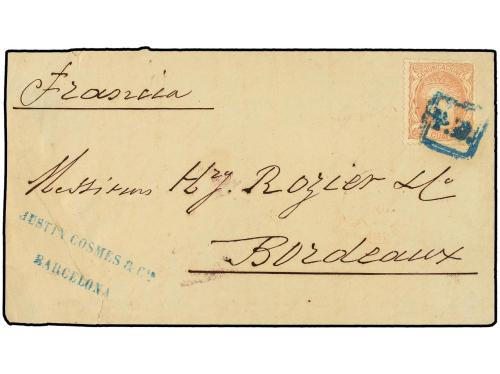 Francia
COMUNICACIONES
P.D.
Messieurs Hry. Rozier & Co
Bordeaux
JUSTIN COSMES & Cie
BARCELONA